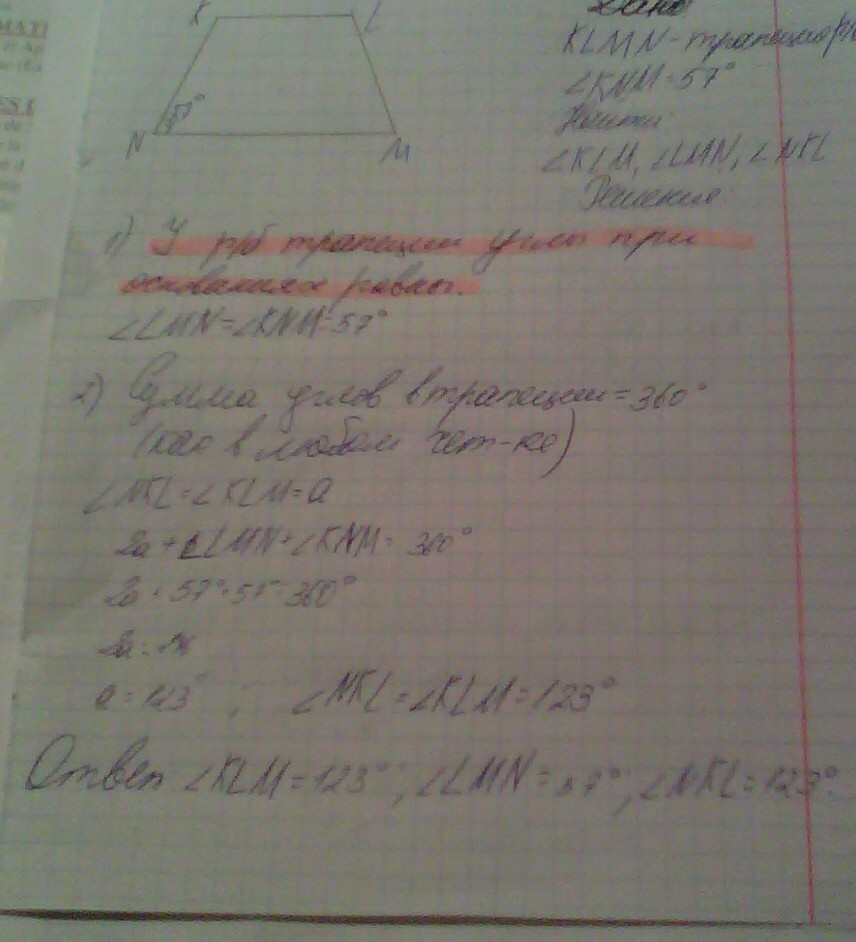 K L
57°
N M
Дано
KLMN - трапеция р/б
∠KNM = 57°
Найти:
∠KLM, ∠LMN, ∠NKL
Решение:
1) У р/б трапеции углы при
основаниях равны.
∠LMN = ∠KNM = 57°
2) Сумма углов в трапеции = 360°
(как в любом чет-ке)
∠NKL = ∠KLM = a
2a + ∠LMN + ∠KNM = 360°
2a + 57° + 57° = 360°
2a =
a = 123° ; ∠NKL = ∠KLM = 123°
Ответ ∠KLM = 123°, ∠LMN = 57°, ∠NKL = 123°.